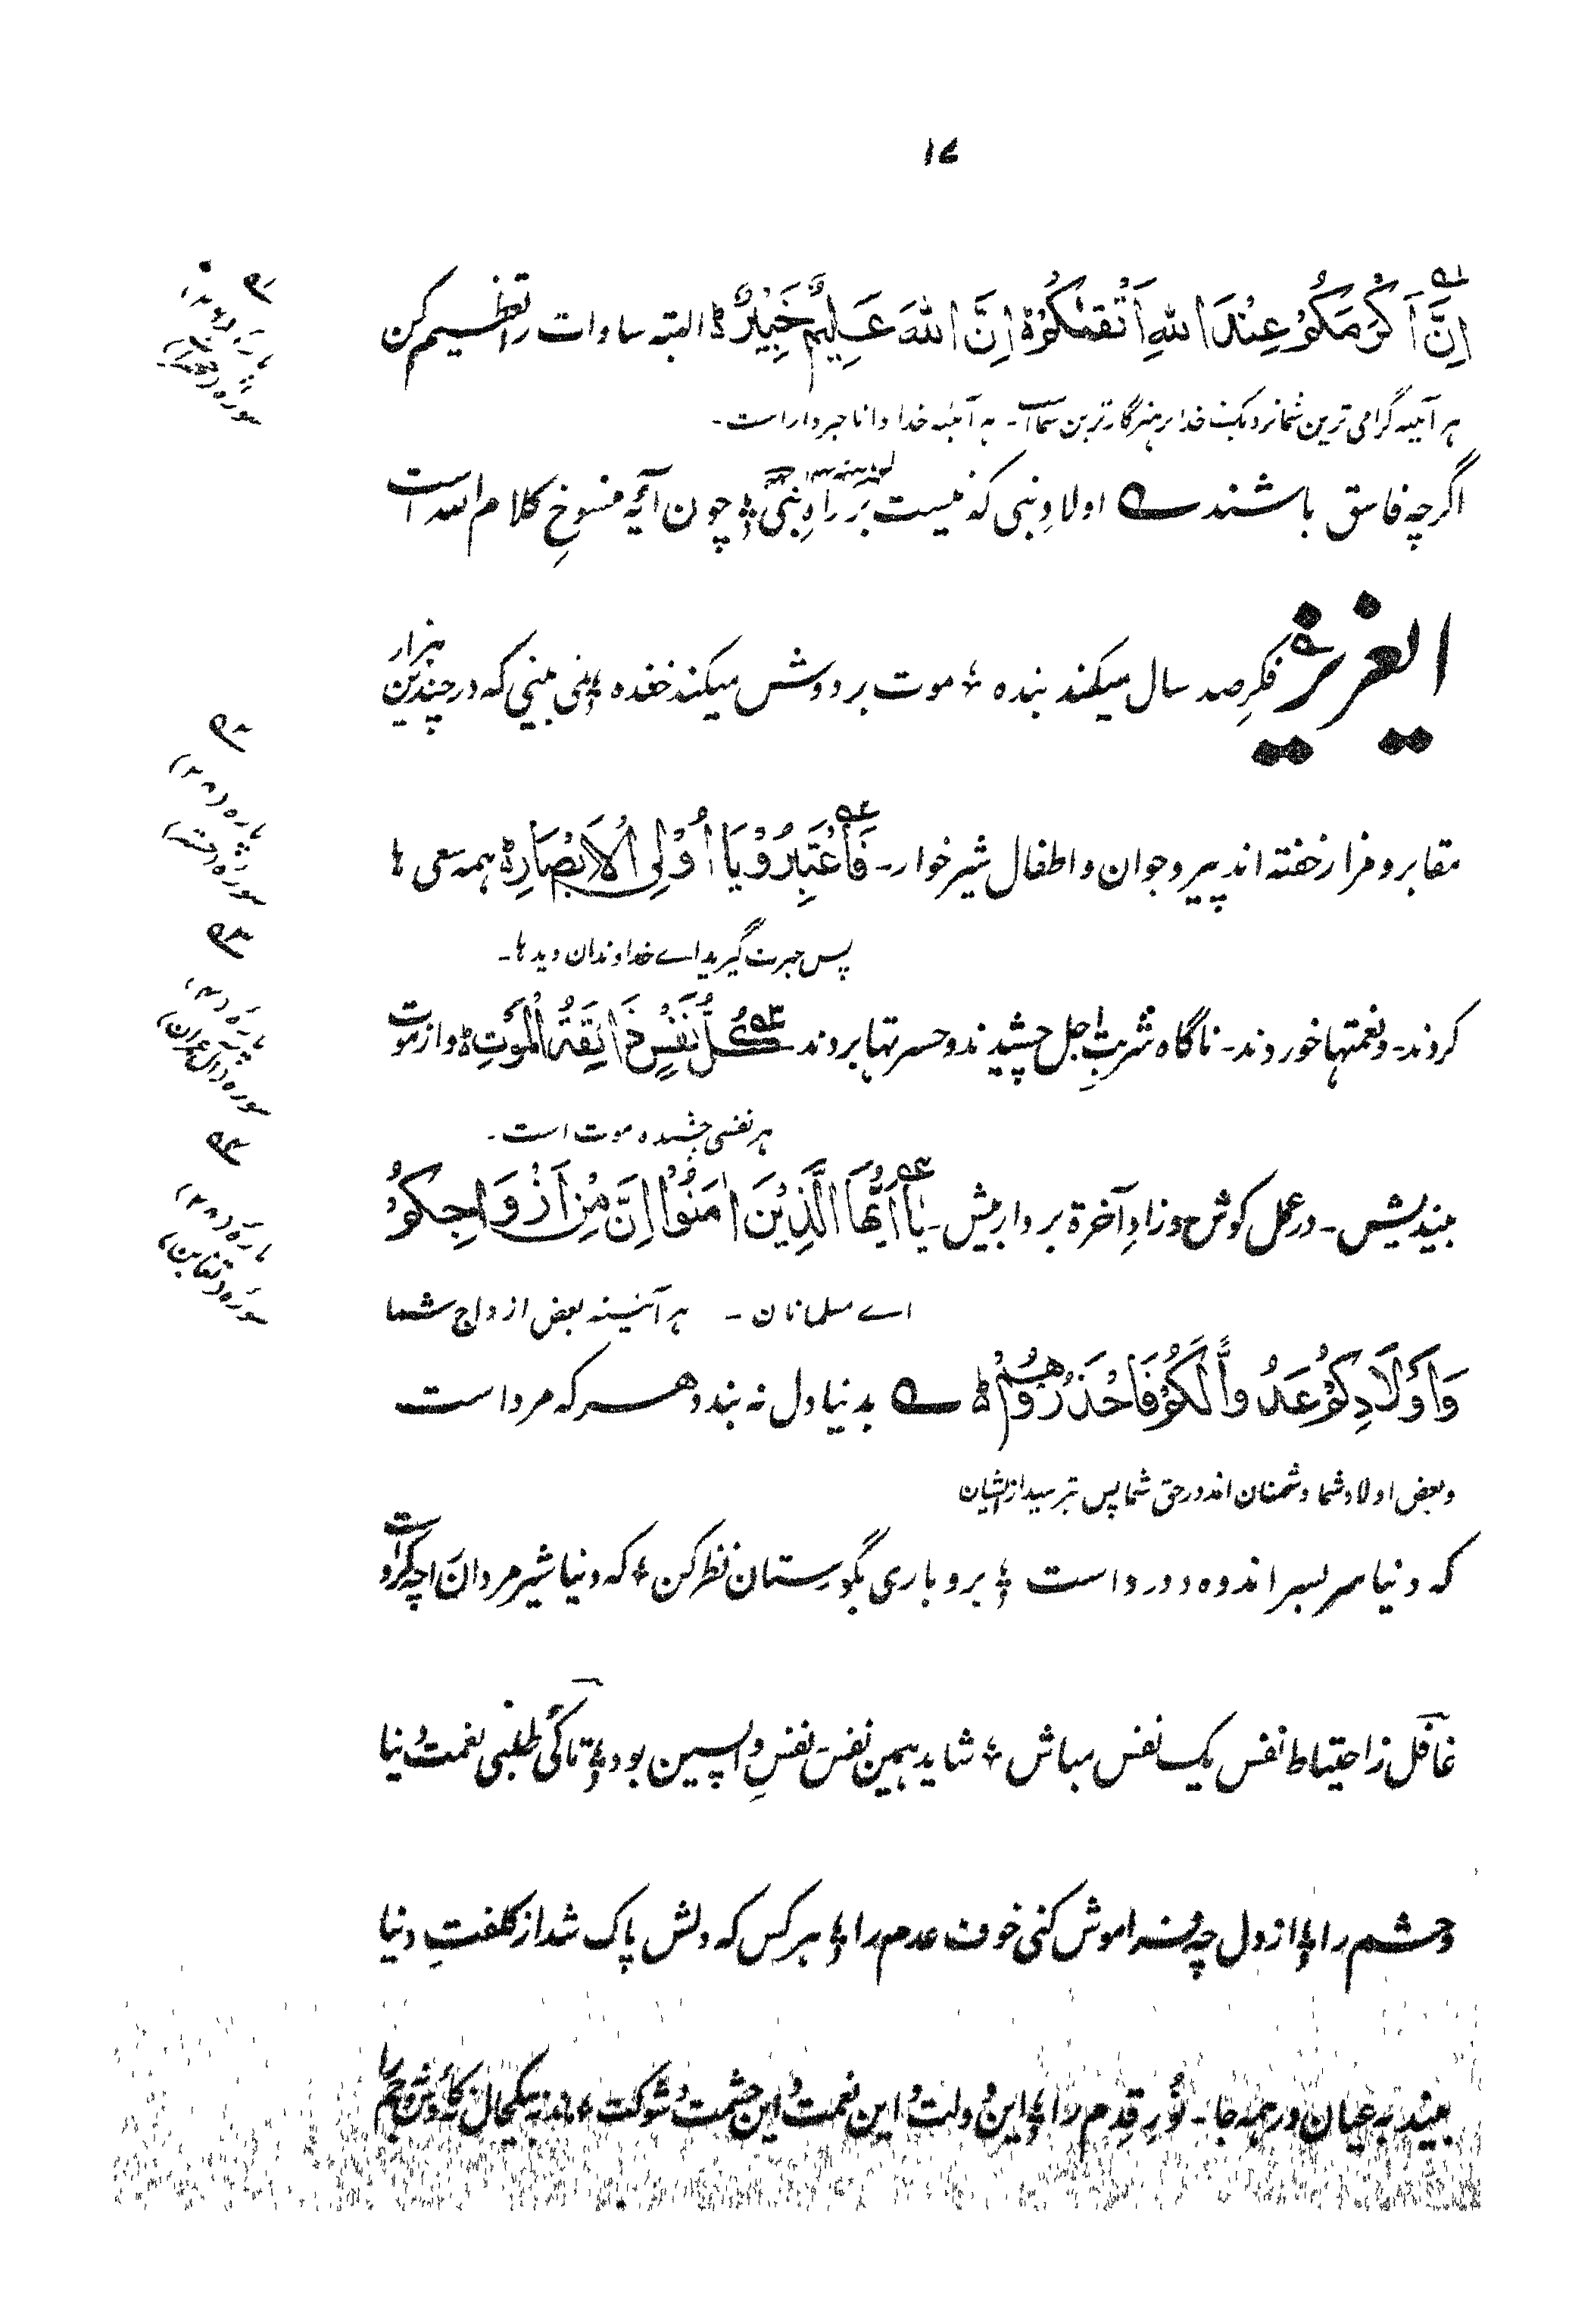 ۱۷
اِنَّ اَکْرَمَکُمْ عِنْدَ اللهِ اَتْقٰکُمْ ؕ اِنَّ اللهَ عَلِیْمٌ خَبِیْرٌ ؕ البته سادات را تعظیم کن
هر آئینه گرامی ترین شما نزدیک خدا پرهیزگارترین شماست۔ هر آئینه خدا دانا خبردار است۔
اگرچه فاسق باشند ؎ اولادِ نبی که نیست بر راهِ نبی ؛ چون آیهٔ منسوخِ کلام الله است
ایعزیز فکرِ صد سال میکند بنده ؛ موت بر دوشش میکند خنده ؛ نمی بینی که در چندین هزار
مقابر و مزار خفته اند پیر و جوان و اطفال شیرخوار۔ فَاعْتَبِرُوْا یَا اُوْلِی الْاَبْصَارِ ؕ همه سعی ها
پس عبرت گیرید اے خداوندان دیدها۔
کردند۔ و نعمتها خوردند۔ ناگاه شربتِ اجل چشیدند و حسرتها بردند۔ کُلُّ نَفْسٍ ذَائِقَةُ الْمَوْتِ ؕ و از موت
هر نفسی چشیده موت است۔
بیندیش۔ در عمل کوش و زادِ آخرة بردار بیش۔ یٰا اَیُّهَا الَّذِیْنَ اٰمَنُوْا اِنَّ مِنْ اَزْوَاجِکُمْ
اے مسلمانان ۔ هر آئینه بعض ازواج شما
وَاَوْلَادِکُمْ عَدُوًّا لَّکُمْ فَاحْذَرُوْهُمْ ؕ ؎ بدنیا دل نه بندد هر که مرد است
و بعض اولاد شما دشمنان اند در حق شما پس بترسید از ایشان
که دنیا سر بسر اندوه و درد است ؛ برو باری بگورستان نظر کن ؛ که دنیا شیر مردان را چه کرد است
غافل ز احتیاط نفس یک نفس مباش ؛ شاید همین نفس نفسِ واپسین بود ؛ تا کی طلبی نعمت دنیا
و حشم را ؛ از دل چه فراموش کنی خوف عدم را ؛ هر کس که دلش پاک شد از کلفتِ دنیا
بیند به عیان در همه جا۔ نُورِ قِدم را ؛ این دولت و این نعمت و این حشمت و شوکت ؛
پاره (۲۸)
سوره (حشر)
پاره (۴)
سوره (آل عمران)
پاره (۲۸)
سوره (تغابن)